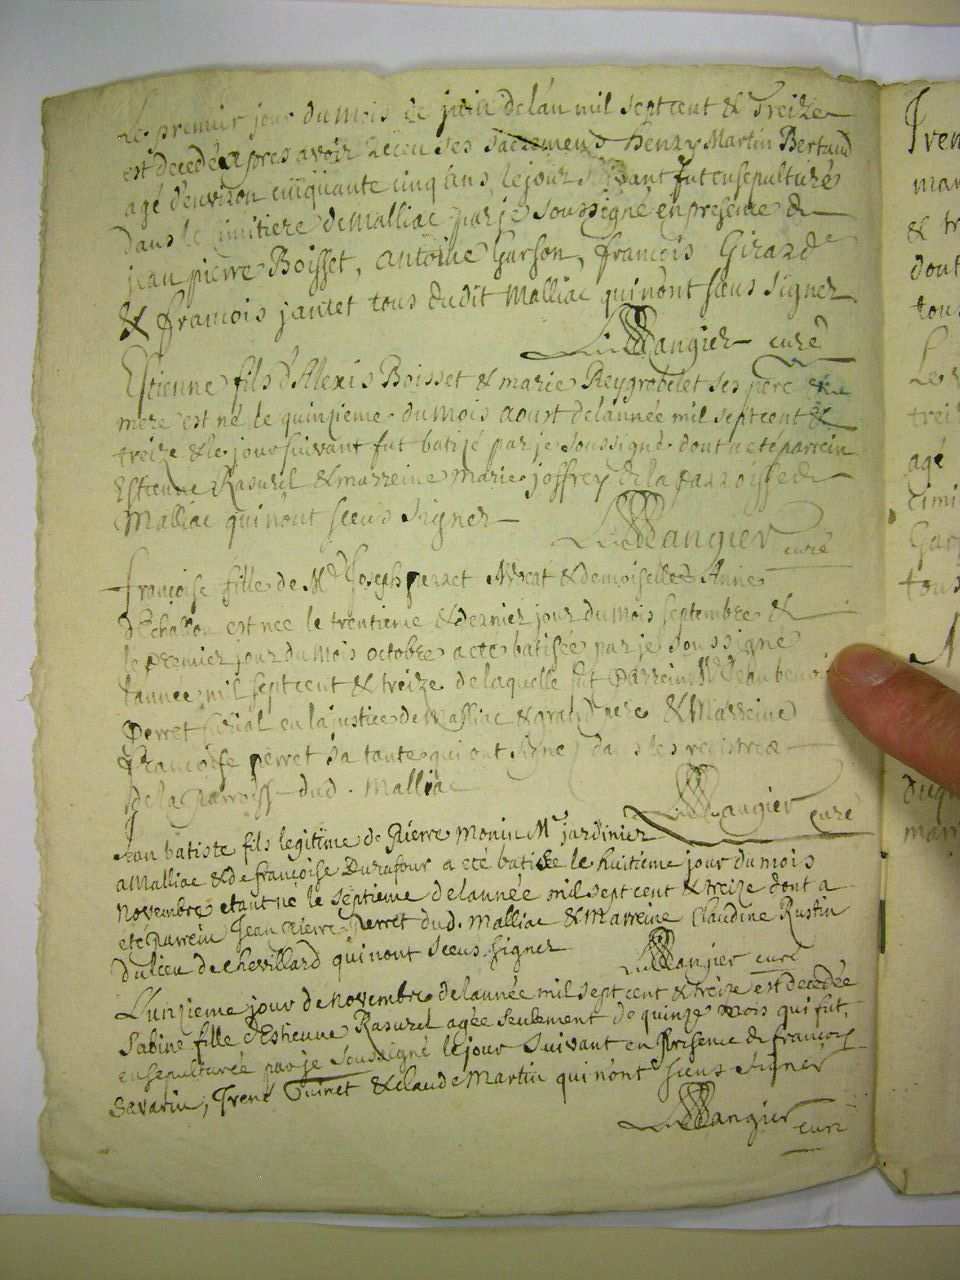 Le premier jour du mois de juin de lan mil sept cent & Treize
est decedé apres avoir receu ses sacremens henry Martin Bertaud
agé d'environ cinquante cinq ans, le jour suivant fut ensepulturé
dans le cimitiere de Malliac par je soussigné en presence de
jean pierre Boisset, antoine Garson, francois Girard
& francois jantet tous dudit Malliac qui nont sceus signer
Langier curé
Estienne fils d'Alexis Boisset & marie Reygrobelet ses pere &
mere est né le quinzieme du mois aoust de lannée mil sept cent &
treize & le jour suivant fut batizé par je soussigné dont a eté parrein
Estienne Rasurel & marreine Marie joffrey de la parroisse de
Malliac qui nont sceus signer
Langier curé
francoise fille de Mr Joseph perret Advocat & demoiselle Anne
d'Echallon est née le trentieme & dernier jour du mois septembre &
le premier jour du mois octobre a eté batisée par je soussigné
lannée mil sept cent & treize de laquelle fut parrein Mr Jean benoi
Perret curial en la justice de Malliac & grand pere & Marreine
francoise perret sa tante qui ont signé dans les registres
de la parroiss dud. Malliac
Langier curé
Jean batiste fils legitime de Pierre Monin Mr jardinier
a Malliac & de françoise Durafour a eté batisée le huitieme jour du mois
Novembre etant né le septieme de lannée mil sept cent & treize dont a
eté Parrein Jean Pierre Perret dud. Malliac & Marreine Claudine Rustin
du lieu de chevillard qui nont sceus signer
Langier curé
L'unzieme jour de novembre de lannée mil sept cent & treize est decedée
Sabine fille d'Estienne Rasurel agée seulement de quinze mois qui fut
ensepulturée par je soussigné le jour suivant en Presence de françois
Savarin, Irené Guinet & claude Martin qui nont sceus signer
Langier curé
Iren
mar
& tr
dont
tous
Le
trei
agé
cimi
Gar
tous
duq
marr